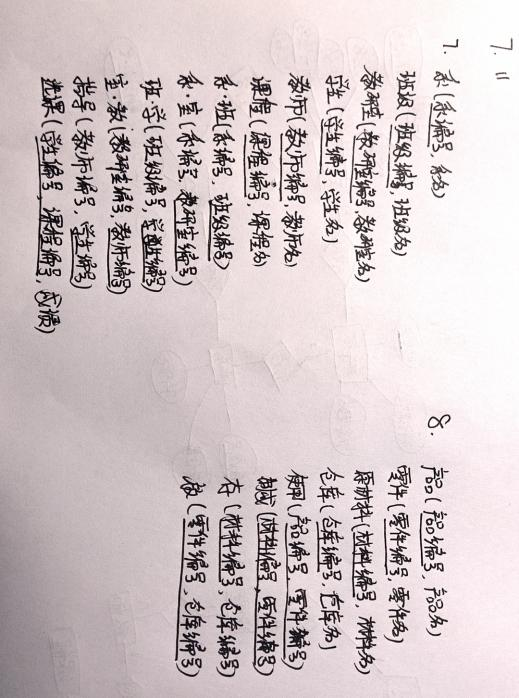 7. 11
7. 系(系编号, 系名)
班级(班级编号, 班级名)
教研室(教研室编号, 教研室名)
学生(学生编号, 学生名)
教师(教师编号, 教师名)
课程(课程编号, 课程名)
系·班(系编号, 班级编号)
系·室(系编号, 教研室编号)
班·学(班级编号, 学生编号)
室·教(教研室编号, 教师编号)
指导(教师编号, 学生编号)
选课(学生编号, 课程编号, 成绩)
8. 产品(产品编号, 产品名)
零件(零件编号, 零件名)
原材料(材料编号, 材料名)
仓库(仓库编号, 仓库名)
使用(产品编号, 零件编号)
制成(材料编号, 零件编号)
存(材料编号, 仓库编号)
放(零件编号, 仓库编号)